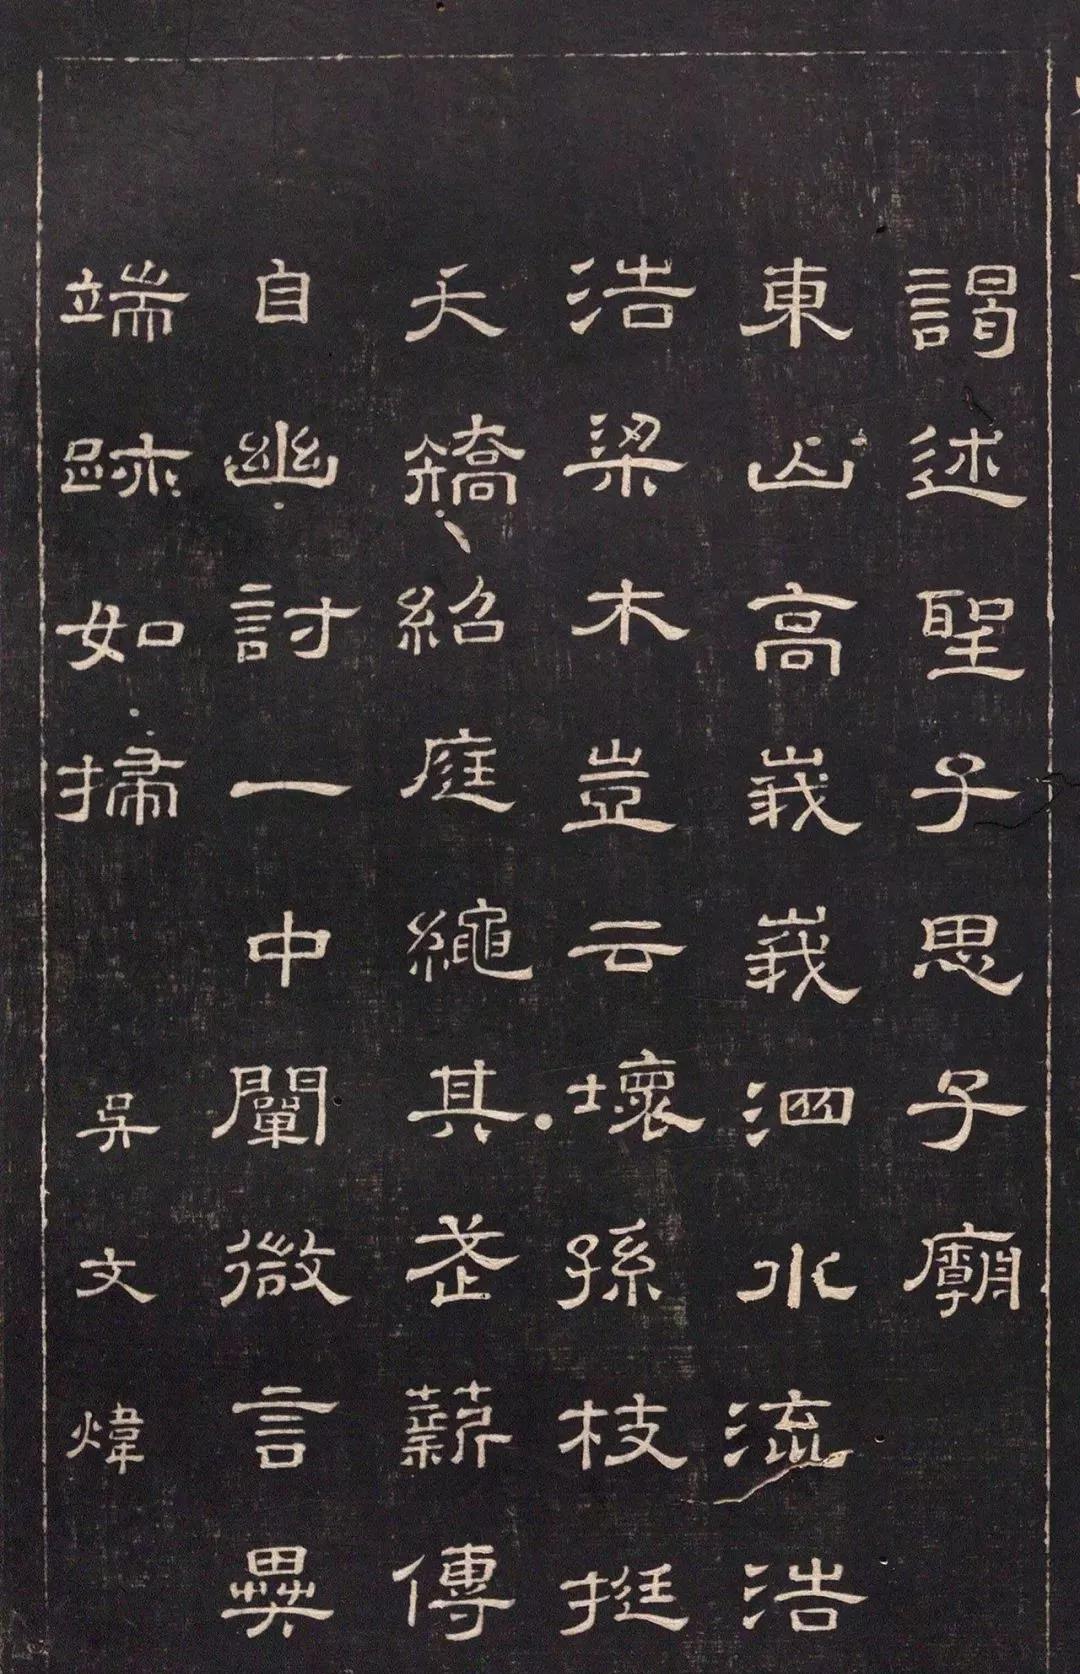 謁述聖子思子廟
東山高峩峩泗水流浩
浩梁木豈云壞孫枝挺
夭矯紹庭繩其武薪傳
自幽討一中闡微言異
端跡如掃 吳文煒